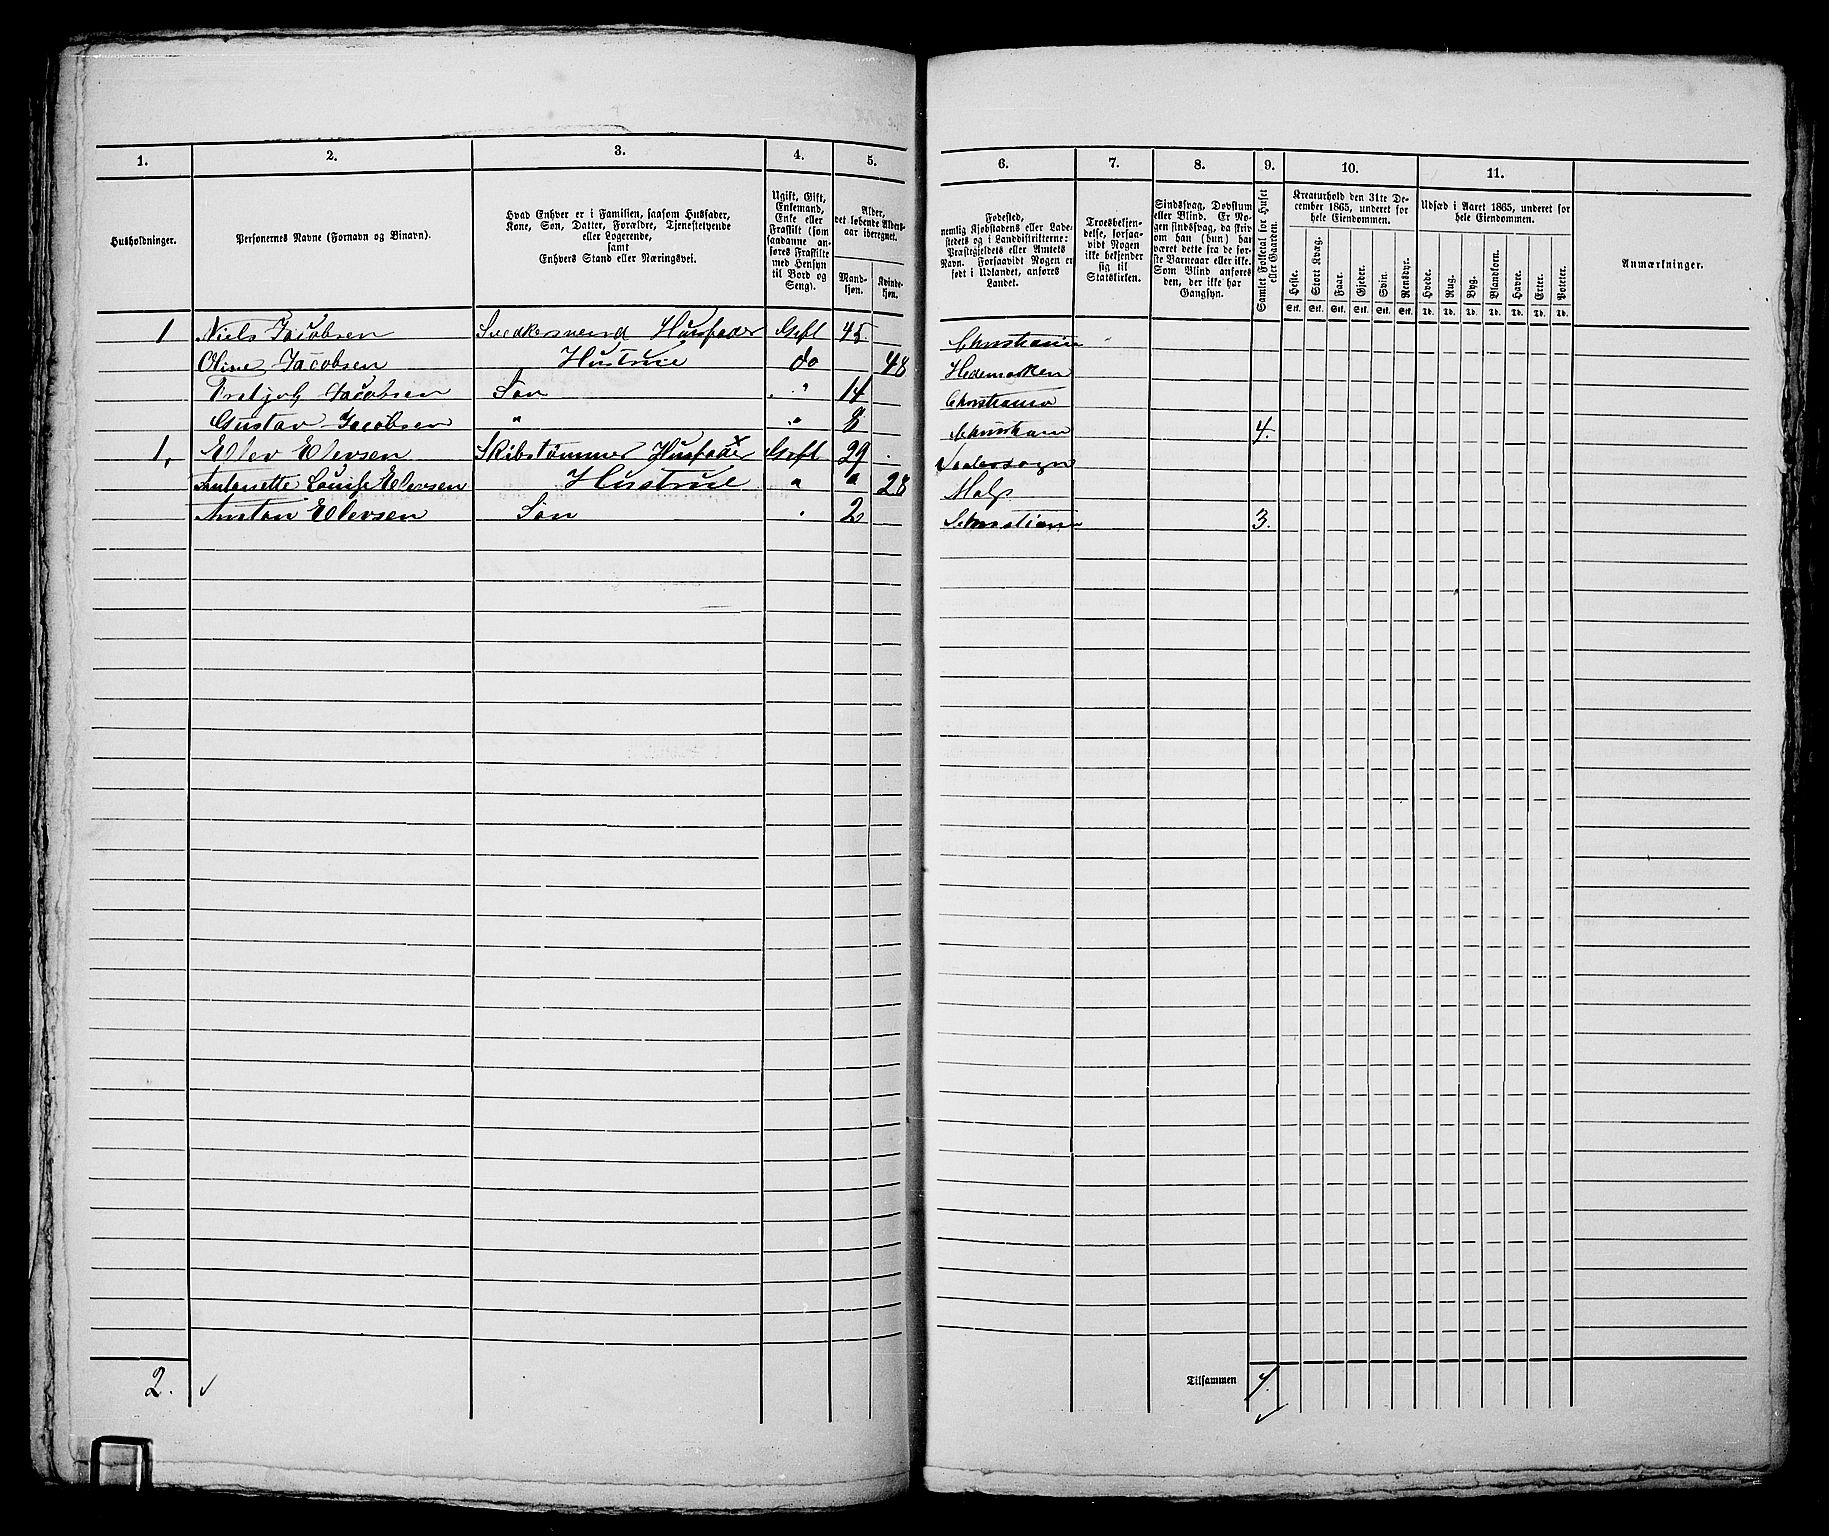 1. 2. 3. 4. 5. 6. 7. 8. 9. 10. 11.
Husholdninger.
Personernes Navne (Fornavn og Binavn).
Hvad Enhver er i Familien, saasom Husfader,
Kone, Søn, Datter, Forældre, Tjenestetyende
eller Logerende,
samt
Enhvers Stand eller Næringsvei.
Ugift, Gift,
Enkemand,
Enke eller
Fraskilt (som
saadanne an-
føres Fraskilte
med Hensyn
til Bord og
Seng).
Alder,
det løbende Alders-
aar iberegnet.
Mand-
kjøn.
Kvinde-
kjøn.
Fødested,
nemlig Kjøbstadens eller Lade-
stedets og i Landdistrikterne:
Præstegjeldets eller Amtets
Navn. Forsaavidt Nogen er
født i Udlandet, anføres
Landet.
Troesbekjen-
delse, forsaa-
vidt Nogen
ikke bekjender
sig til
Statskirken.
Sindssvag, Døvstum
eller Blind. Er No-
gen sindssvag, da skriv
om han (hun) har
været dette fra de før-
ste Barneaar eller ikke.
Som Blind anføres
den, der ikke har
Gangsyn.
Samlet Folketal for Huset
eller Gaarden.
Kreaturhold den 31te De-
cember 1865, underet for
hele Eiendommen.
Heste. Stort Kvæg. Faar. Gjeder. Svin. Rensdyr.
Stk. Stk. Stk. Stk. Stk. Stk.
Udsæd i Aaret 1865, underet for
hele Eiendommen.
Hvede. Rug. Byg. Blandkorn. Havre. Erter. Poteter.
Td. Td. Td. Td. Td. Td. Td.
Anmærkninger.
1 Niels Jacobsen Snedkersvend Husfader Gift 45. Christiania
Oline Jacobsen Hustrue do 48 Hedemarken
Jacobsen Søn " 14 Christiania
Gustav Jacobsen " " 8 4.
1. Ellev Elevsen Skibstømmer Husfader Gift 29
Antonette Louise Elevsen Hustrue " " 28
Elevsen Søn 2 3.
2.
Tilsammen 7.